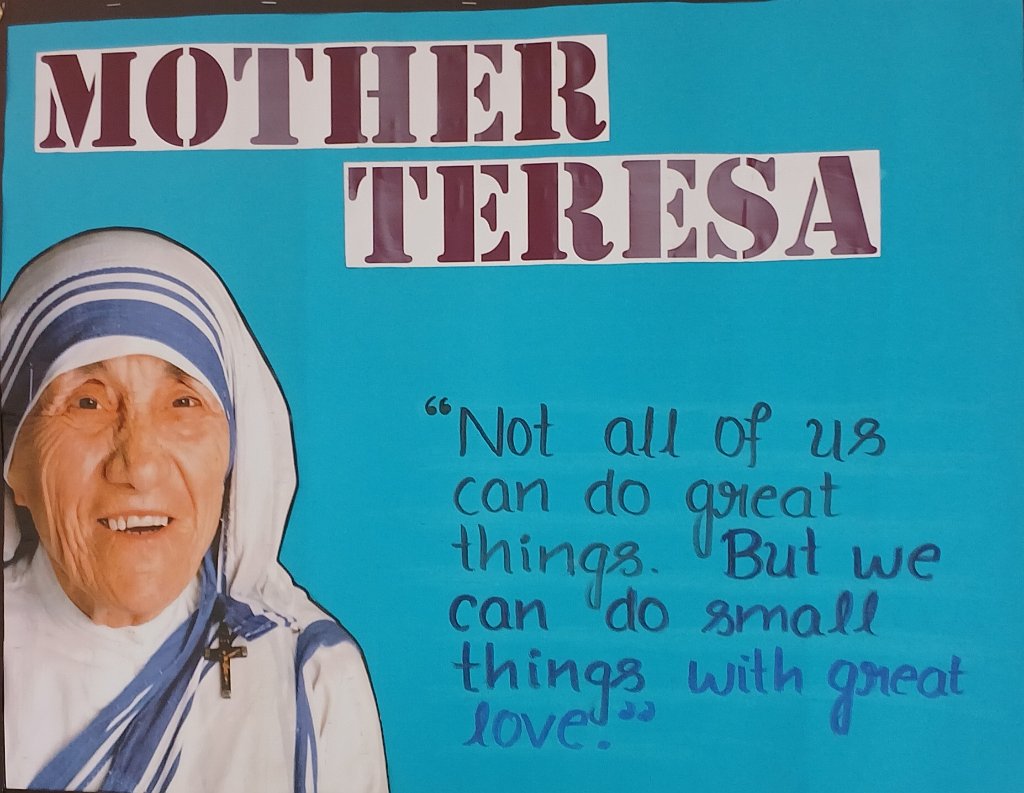 MOTHER
TERESA
“Not all of us
can do great
things. But we
can do small
things with great
love.”